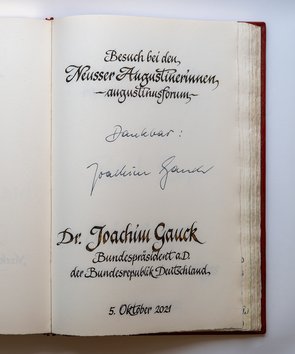 Besuch bei den
Neusser Augustinerinnen
-augustinusforum-
Dankbar:
Joachim Gauck
Dr. Joachim Gauck
Bundespräsident a.D.
der Bundesrepublik Deutschland
5. Oktober 2021